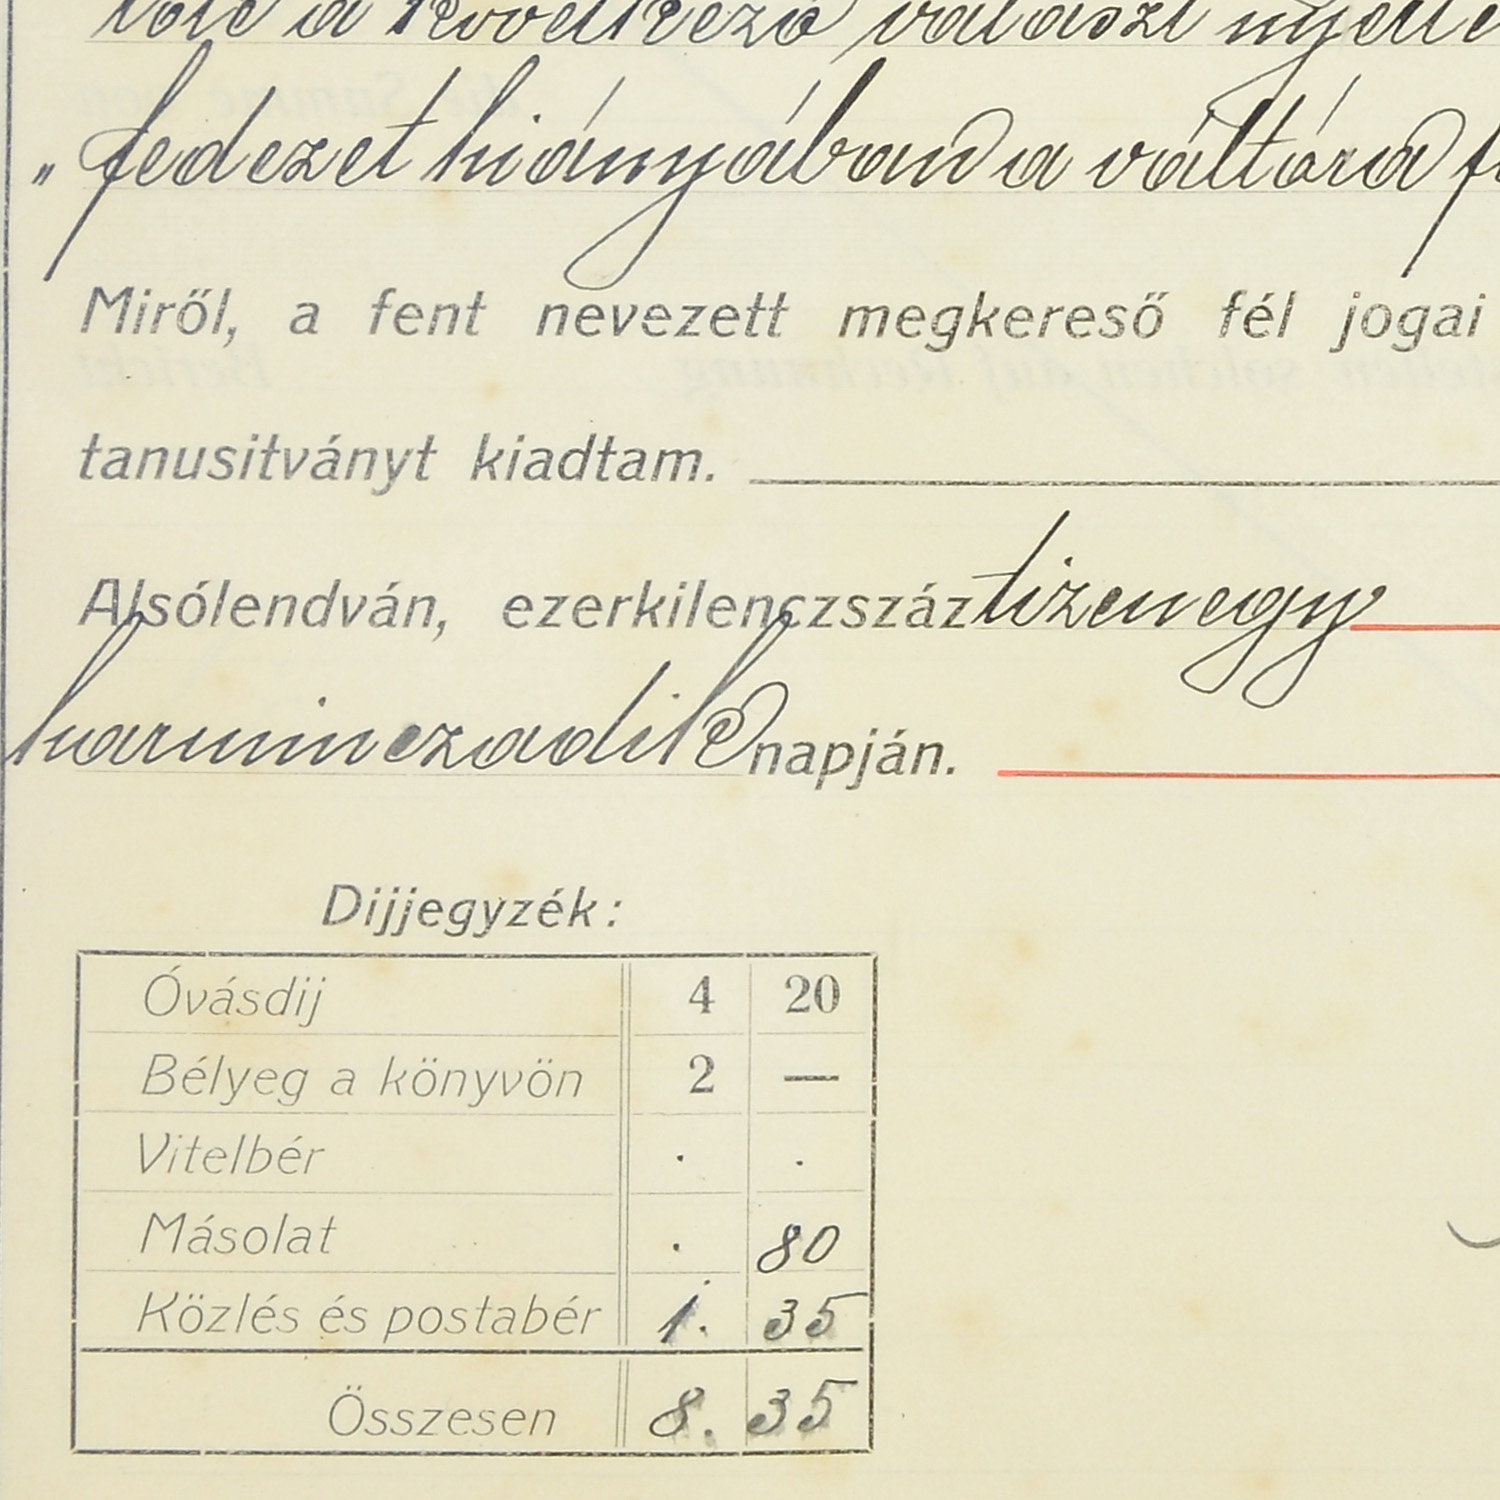 tőle a következő választ nyert
„fedezet hiányában a váltóra
Miről, a fent nevezett megkereső fél jogai
tanusitványt kiadtam.
Alsólendván, ezerkilenczszáztizenegy
harminczadik napján.
Dijjegyzék:
Óvásdij 4 20
Bélyeg a könyvön 2 —
Vitelbér . .
Másolat . 80
Közlés és postabér 1. 35
Összesen 8. 35